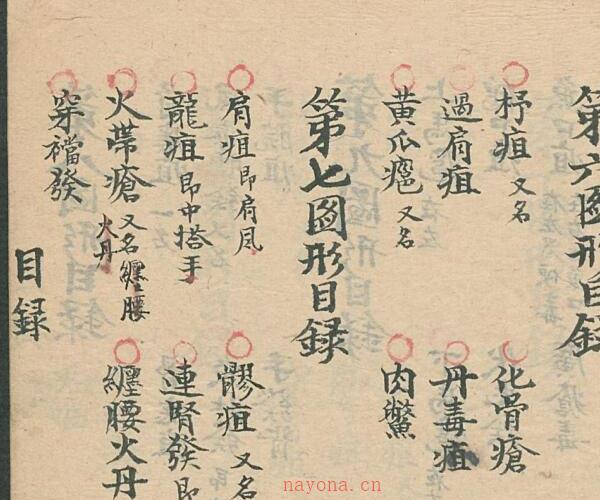 第六圖形目録
杼疽 又名 化骨瘡
過肩疽 丹毒疽
黃瓜癰 又名 肉鱉
第七圖形目録
肩疽 即肩风 髎疽 又名
龍疽 即中搭手 連腎發 即
火帶瘡 又名纏腰火丹 纏腰火丹
穿襠發
目録
nayona.cn